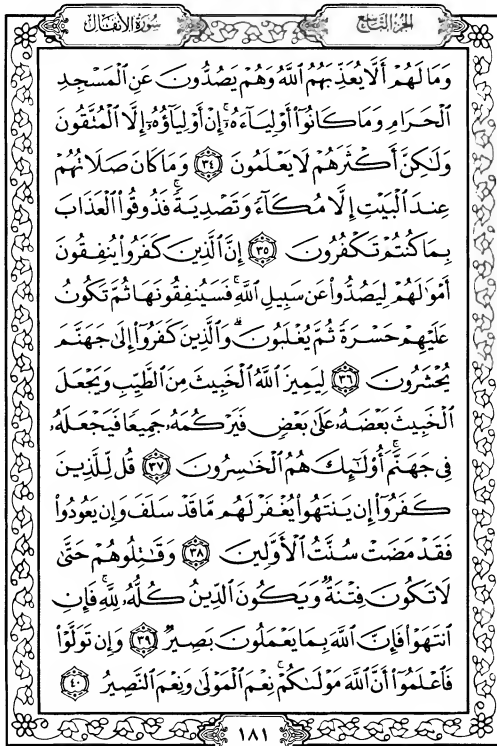 سُورَةُ الأَنْفَال
الجُزْءُ التَّاسِع
وَمَا لَهُمْ أَلَّا يُعَذِّبَهُمُ ٱللَّهُ وَهُمْ يَصُدُّونَ عَنِ ٱلْمَسْجِدِ
ٱلْحَرَامِ وَمَا كَانُوٓا۟ أَوْلِيَآءَهُۥٓ ۚ إِنْ أَوْلِيَآؤُهُۥٓ إِلَّا ٱلْمُتَّقُونَ
وَلَٰكِنَّ أَكْثَرَهُمْ لَا يَعْلَمُونَ ٣٤ وَمَا كَانَ صَلَاتُهُمْ
عِندَ ٱلْبَيْتِ إِلَّا مُكَآءً وَتَصْدِيَةً ۚ فَذُوقُوا۟ ٱلْعَذَابَ
بِمَا كُنتُمْ تَكْفُرُونَ ٣٥ إِنَّ ٱلَّذِينَ كَفَرُوا۟ يُنفِقُونَ
أَمْوَٰلَهُمْ لِيَصُدُّوا۟ عَن سَبِيلِ ٱللَّهِ ۚ فَسَيُنفِقُونَهَا ثُمَّ تَكُونُ
عَلَيْهِمْ حَسْرَةً ثُمَّ يُغْلَبُونَ ۗ وَٱلَّذِينَ كَفَرُوٓا۟ إِلَىٰ جَهَنَّمَ
يُحْشَرُونَ ٣٦ لِيَمِيزَ ٱللَّهُ ٱلْخَبِيثَ مِنَ ٱلطَّيِّبِ وَيَجْعَلَ
ٱلْخَبِيثَ بَعْضَهُۥ عَلَىٰ بَعْضٍ فَيَرْكُمَهُۥ جَمِيعًا فَيَجْعَلَهُۥ
فِى جَهَنَّمَ ۚ أُو۟لَٰٓئِكَ هُمُ ٱلْخَٰسِرُونَ ٣٧ قُل لِّلَّذِينَ
كَفَرُوٓا۟ إِن يَنتَهُوا۟ يُغْفَرْ لَهُم مَّا قَدْ سَلَفَ وَإِن يَعُودُوا۟
فَقَدْ مَضَتْ سُنَّتُ ٱلْأَوَّلِينَ ٣٨ وَقَٰتِلُوهُمْ حَتَّىٰ
لَا تَكُونَ فِتْنَةٌ وَيَكُونَ ٱلدِّينُ كُلُّهُۥ لِلَّهِ ۚ فَإِنِ
ٱنتَهَوْا۟ فَإِنَّ ٱللَّهَ بِمَا يَعْمَلُونَ بَصِيرٌ ٣٩ وَإِن تَوَلَّوْا۟
فَٱعْلَمُوٓا۟ أَنَّ ٱللَّهَ مَوْلَىٰكُمْ ۚ نِعْمَ ٱلْمَوْلَىٰ وَنِعْمَ ٱلنَّصِيرُ ٤٠
١٨١